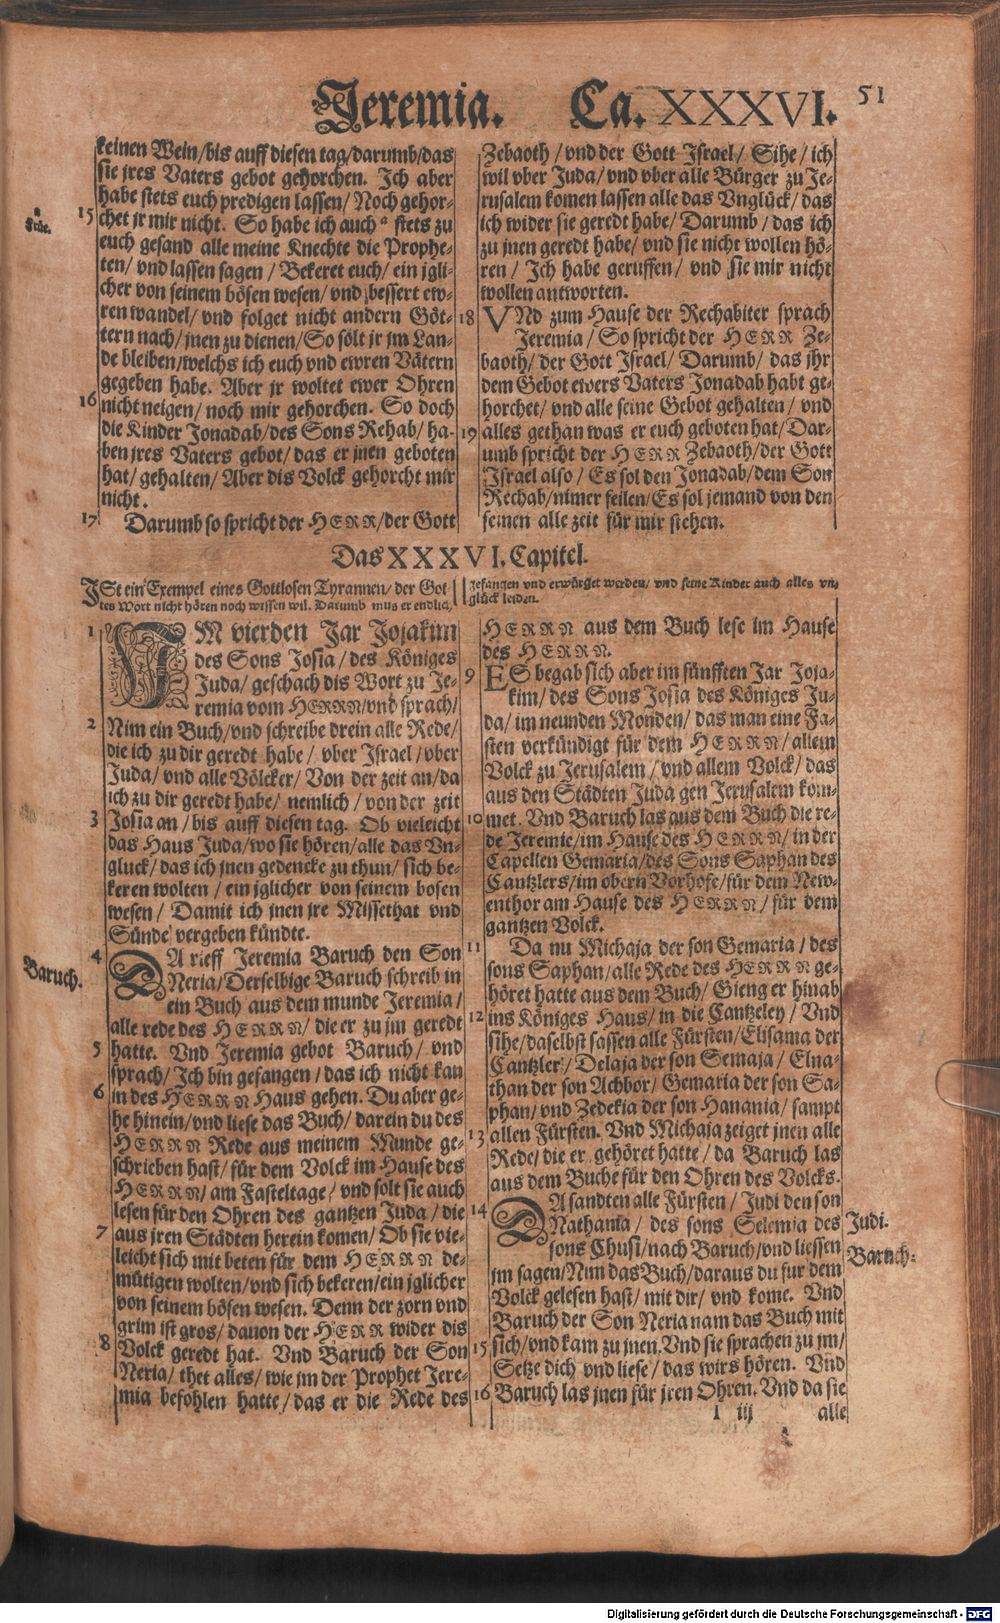 Jeremia. Ca. XXXVI. 51
keinen Wein/bis auff diesen tag/darumb/das
sie jres Vaters gebot gehorchen. Ich aber
habe stets euch predigen lassen/ Noch gehor-
15 chet jr mir nicht. So habe ich auch a stets zu
a
Früe.
euch gesand alle meine Knechte die Prophe-
ten/ vnd lassen sagen / Bekeret euch/ ein jgli-
cher von seinem bösen wesen/ vnd bessert ew-
ren wandel/ vnd folget nicht andern Göt-
tern nach/ jnen zu dienen/ So sölt jr jm Lan-
de bleiben/welchs ich euch vnd ewren Vätern
gegeben habe. Aber jr woltet ewer Ohren
16 nicht neigen/ noch mir gehorchen. So doch
die Kinder Jonadab/des Sons Rehab/ ha-
ben jres Vaters gebot/ das er jnen geboten
hat/ gehalten/ Aber dis Volck gehorcht mir
nicht.
17 Darumb so spricht der HERR/der Gott
Zebaoth / vnd der Gott Israel/ Sihe / ich
wil vber Juda/ vnd vber alle Bürger zu Je-
rusalem komen lassen alle das Vnglück/ das
ich wider sie geredt habe/ Darumb / das ich
zu jnen geredt habe/ vnd sie nicht wollen hö-
ren / Ich habe geruffen/ vnd sie mir nicht
wollen antworten.
18 VNd zum Hause der Rechabiter sprach
Jeremia / So spricht der HERR Ze-
baoth/ der Gott Israel/ Darumb/ das jhr
dem Gebot ewers Vaters Jonadab habt ge-
horchet/ vnd alle seine Gebot gehalten / vnd
19 alles gethan was er euch geboten hat/ Dar-
umb spricht der HERR Zebaoth/der Gott
Israel also / Es sol den Jonadab/dem Son
Rechab/nimer feilen/Es sol jemand von den
seinen alle zeit für mir stehen.
Das XXXVI. Capitel.
ISt ein Exempel eines Gottlosen Tyrannen/ der Got
tes Wort nicht hören noch wissen wil. Darumb mus er endlich/
gefangen vnd erwürget werden/ vnd seine Kinder auch alles vn-
glück leiden.
1 IM vierden Jar Jojakim
des Sons Josia / des Königes
Juda/ geschach dis Wort zu Je-
remia vom HERRN/vnd sprach/
2 Nim ein Buch/vnd schreibe drein alle Rede/
die ich zu dir geredt habe/ vber Israel/vber
Juda/ vnd alle Völcker/ Von der zeit an/da
ich zu dir geredt habe/ nemlich / von der zeit
3 Josia an/ bis auff diesen tag. Ob vieleicht
das Haus Juda/ wo sie hören/alle das Vn-
gluck/ das ich jnen gedencke zu thun/ sich be-
keren wolten / ein jglicher von seinem bosen
wesen/ Damit ich jnen jre Missethat vnd
Sünde vergeben kündte.
4 DA rieff Jeremia Baruch den Son
Baruch.
Neria/ Derselbige Baruch schreib in
ein Buch aus dem munde Jeremia /
alle rede des HERRN/ die er zu jm geredt
5 hatte. Vnd Jeremia gebot Baruch/ vnd
sprach/ Ich bin gefangen / das ich nicht kan
6 in des HERRN Haus gehen. Du aber ge-
he hinein/vnd liese das Buch/ darein du des
HERRN Rede aus meinem Munde ge-
schrieben hast/ für dem Volck im Hause des
HERRN/ am Fasteltage / vnd solt sie auch
lesen für den Ohren des gantzen Juda / die
7 aus jren Städten herein komen/ Ob sie vie-
leicht sich mit beten für dem HERRN de-
mütigen wolten/vnd sich bekeren/ein jglicher
von seinem bösen wesen. Denn der zorn vnd
grim ist gros/ dauon der HERR wider dis
8 Volck geredt hat. Vnd Baruch der Son
Neria/ thet alles/ wie jm der Prophet Jere-
mia befohlen hatte/ das er die Rede des
HERRN aus dem Buch lese im Hause
des HERRN.
9 ES begab sich aber im fünfften Jar Joja-
kim/ des Sons Josia des Königes Ju-
da/ im neunden Monden/ das man eine Fa-
sten verkündigt für dem HERRN/ allem
Volck zu Jerusalem / vnd allem Volck/ das
aus den Städten Juda gen Jerusalem kom-
10 met. Vnd Baruch las aus dem Buch die re-
de Jeremie/im Hause des HERRN/ in der
Capellen Gemaria/des Sons Saphan des
Cantzlers/im obern Vorhofe/für dem New-
enthor am Hause des HERRN/ für dem
gantzen Volck.
11 Da nu Michaja der son Gemaria / des
sons Saphan/alle Rede des HERRN ge-
höret hatte aus dem Buch/ Gieng er hinab
12 ins Königes Haus/ in die Cantzeley / Vnd
sihe/daselbst sassen alle Fürsten/Elisama der
Cantzler/ Delaja der son Semaja/ Elna-
than der son Achbor/ Gemaria der son Sa-
phan/ vnd Zedekia der son Hanania/ sampt
13 allen Fürsten. Vnd Michaja zeiget jnen alle
Rede/ die er gehöret hatte / da Baruch las
aus dem Buche für den Ohren des Volcks.
14 DA sandten alle Fürsten / Judi den son
Nathania / des sons Selemia des
Judi.
sons Chusi/nach Baruch/vnd liessen
Baruch:
jm sagen/Nim das Buch/daraus du fur dem
Volck gelesen hast/ mit dir/ vnd kome. Vnd
Baruch der Son Neria nam das Buch mit
15 sich/vnd kam zu jnen. Vnd sie sprachen zu jm/
Setze dich vnd liese/ das wirs hören. Vnd
16 Baruch las jnen für jren Ohren. Vnd da sie
I iij alle
Digitalisierung gefördert durch die Deutsche Forschungsgemeinschaft - DFG